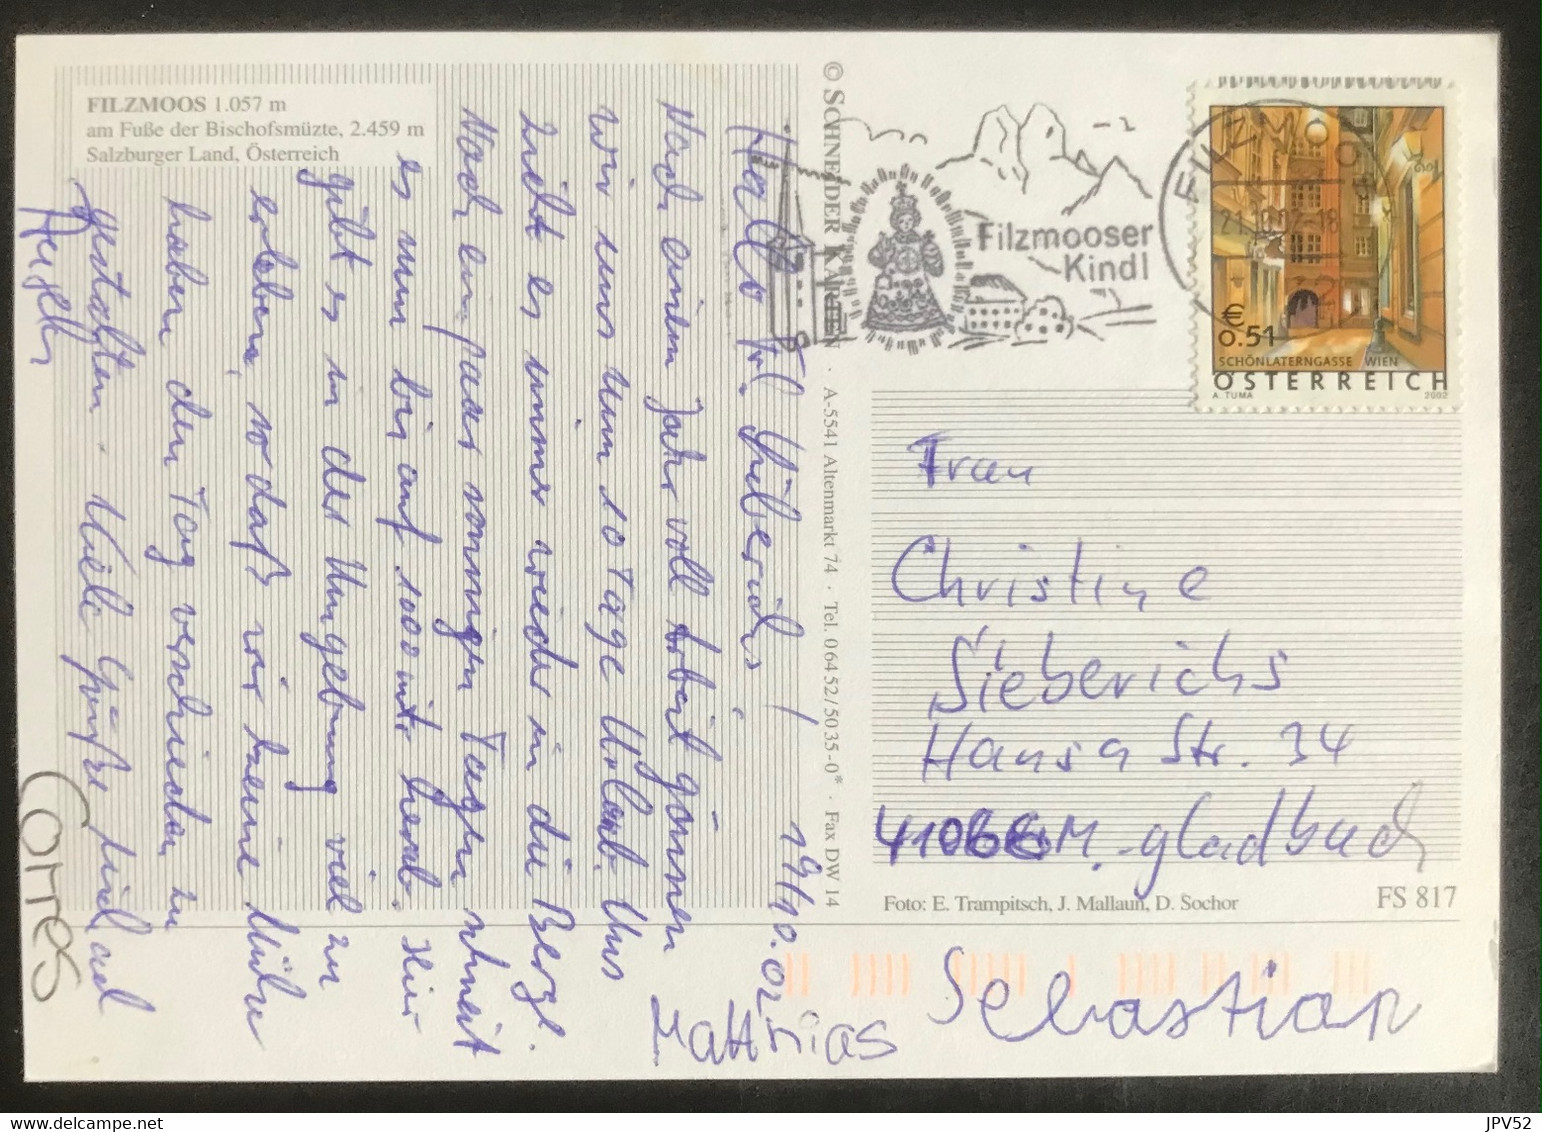 FILZMOOS 1.057 m
am Fuße der Bischofsmüzte, 2.459 m
Salzburger Land, Österreich
19/10.02.
Hallo Fr. Sieberichs!
Nach einem Jahr voll Arbeit gönnen
wir uns nun 10 Tage Urlaub. Uns
zieht es immer wieder in die Berge.
Nach ein paar sonnigen Tagen schneit
es nun bis auf 1000 mtr herab. Hier
gibt es in der Umgebung viel zu
erleben, so daß wir keine Mühe
haben den Tag verschieden zu
gestalten. Viele Grüße Michael
Corres
Matthias
Sebastian
© SCHNEIDER KARTEN · A-5541 Altenmarkt 74 · Tel. 06452/5035-0* · Fax DW 14
Filzmooser
Kindl
FILZMOOS
21.10.02-18
€
0.51
SCHÖNLATERNGASSE WIEN
ÖSTERREICH
A. TUMA 2002
Frau
Christine
Sieberichs
Hansa Str. 34
41066 M.-gladbach
Foto: E. Trampitsch, J. Mallaun, D. Sochor
FS 817
delcampe.net
JPV52